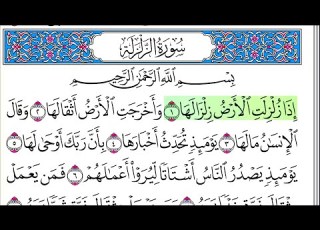 سُورَةُ الزَّلْزَلَةِ
بِسْمِ اللَّهِ الرَّحْمَٰنِ الرَّحِيمِ
إِذَا زُلْزِلَتِ الْأَرْضُ زِلْزَالَهَا ١ وَأَخْرَجَتِ الْأَرْضُ أَثْقَالَهَا ٢ وَقَالَ
الْإِنسَٰنُ مَا لَهَا ٣ يَوْمَئِذٍ تُحَدِّثُ أَخْبَارَهَا ٤ بِأَنَّ رَبَّكَ أَوْحَىٰ لَهَا ٥
يَوْمَئِذٍ يَصْدُرُ النَّاسُ أَشْتَاتًا لِّيُرَوْا أَعْمَٰلَهُمْ ٦ فَمَن يَعْمَلْ